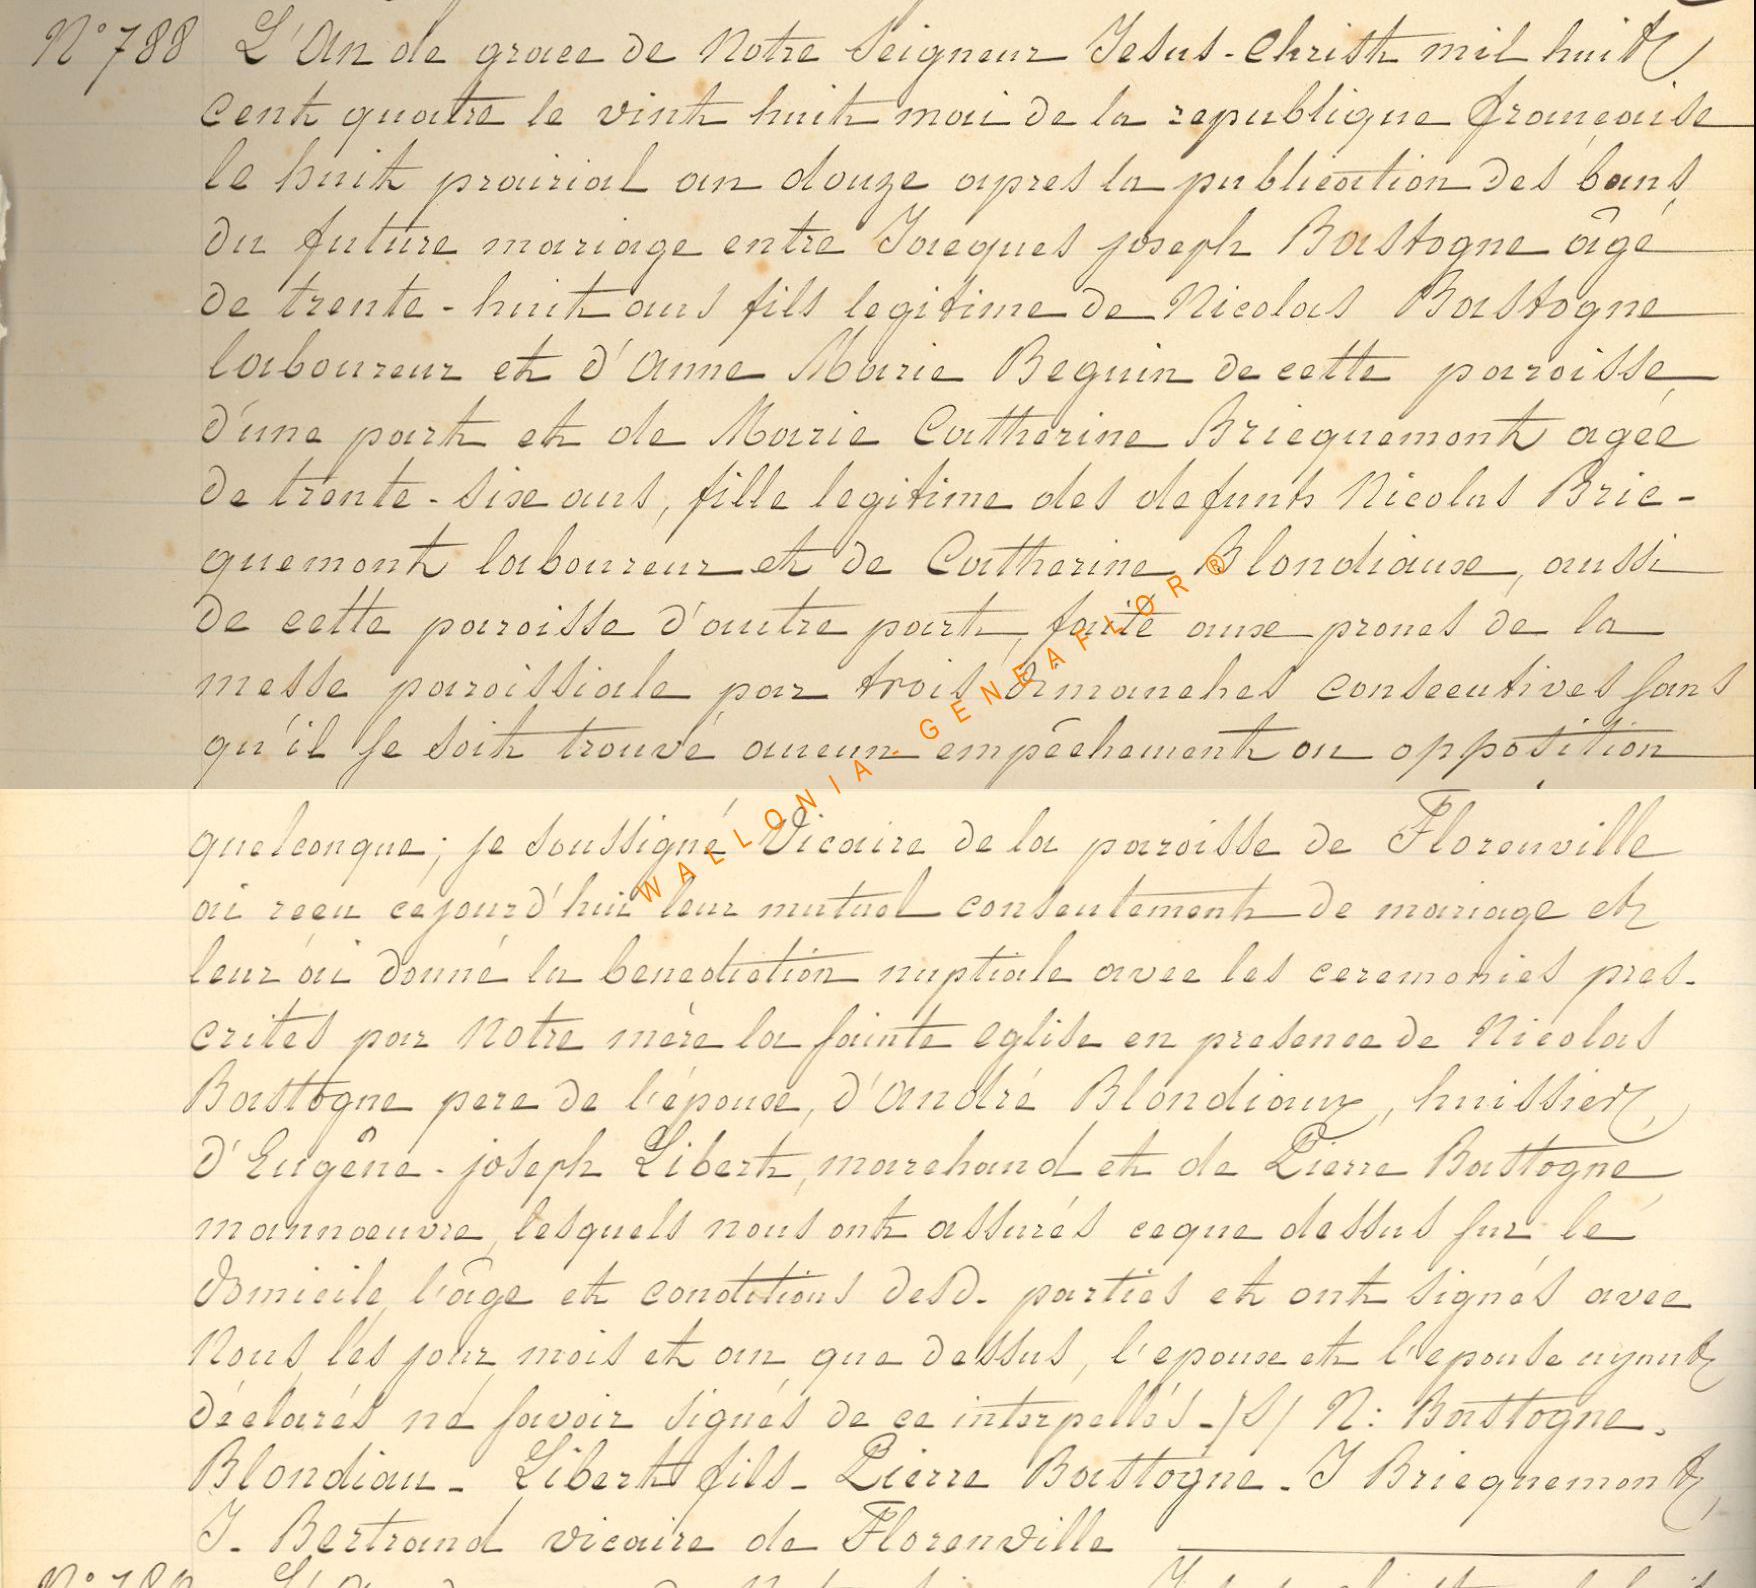 N° 788 L'An de grace de Notre Seigneur Jesus-Christ mil huit
cent quatre le vint huit mai de la republique française
le huit prairial an douze apres la publication des bans
du future mariage entre Jacques joseph Bastogne âgé
de trente-huit ans fils legitime de Nicolas Bastogne
laboureur et d'Anne Marie Beguin de cette paroisse,
d'une part et de Marie Catherine Bricquemont agée
de trente-six ans, fille legitime des defunts Nicolas Bric-
quemont laboureur et de Catherine Blondiaux, aussi
de cette paroisse d'autre part, faite aux prones de la
messe paroissiale par trois dimanches consecutives sans
qu'il se soit trouvé aucun empêchement ou opposition
quelconque; je soussigné Vicaire de la paroisse de Florenville
ai reçu cejourd'hui leur mutuel consentement de mariage et
leur ai donné la benediction nuptiale avec les ceremonies pres-
crites par Notre mère la sainte eglise en presence de Nicolas
Bastogne pere de l'époux, d'André Blondiaux, huissier,
d'Eugêne-joseph Libert, marchand et de Pierre Bastogne
mannoeuvre, lesquels nous ont assurés ceque dessus sur le
domicile, l'âge et conditions desd. parties et ont signés avec
Nous, les jour, mois et an, que dessus, l'epoux et l'epouse ayant
déclarés né savoir signés de ce interpellés-/S/ N: Bastogne.
Blondiau- Libert fils- Pierre Bastogne. J Bricquemont,
J. Bertrand vicaire de Florenville
WALLONIA-GENEAFLOR ®